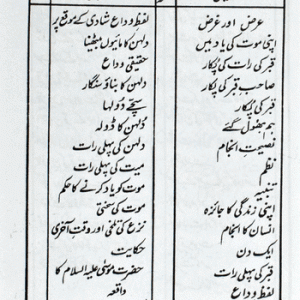 عرض اور غرض
اپنی موت کی یاد میں
قبر کی رات کی پکار
صاحبِ قبر کی پکار
قبر کی پکار
ہم بھول گئے
نصیحت انجام
نظم
تنبیہ
اپنی زندگی کا جائزہ
انسان کا انجام
ایک دن
قبر کی پہلی رات
لفظ وداع
لفظ وداع شادی کے موقع پر
دلہن کا مائیوں بیٹھنا
حقیقی وداع
دلہن کا بناؤ سنگار
سچے دولہا
دلہن کا ڈولہ
دلہن کی پہلی رات
میت کی پہلی رات
موت کو یاد کرنے کا حکم
موت کی سختی
نزع کی تلخی اور وقت آخری
حکایت
حضرت موسیٰ علیہ السلام کا
واقعہ